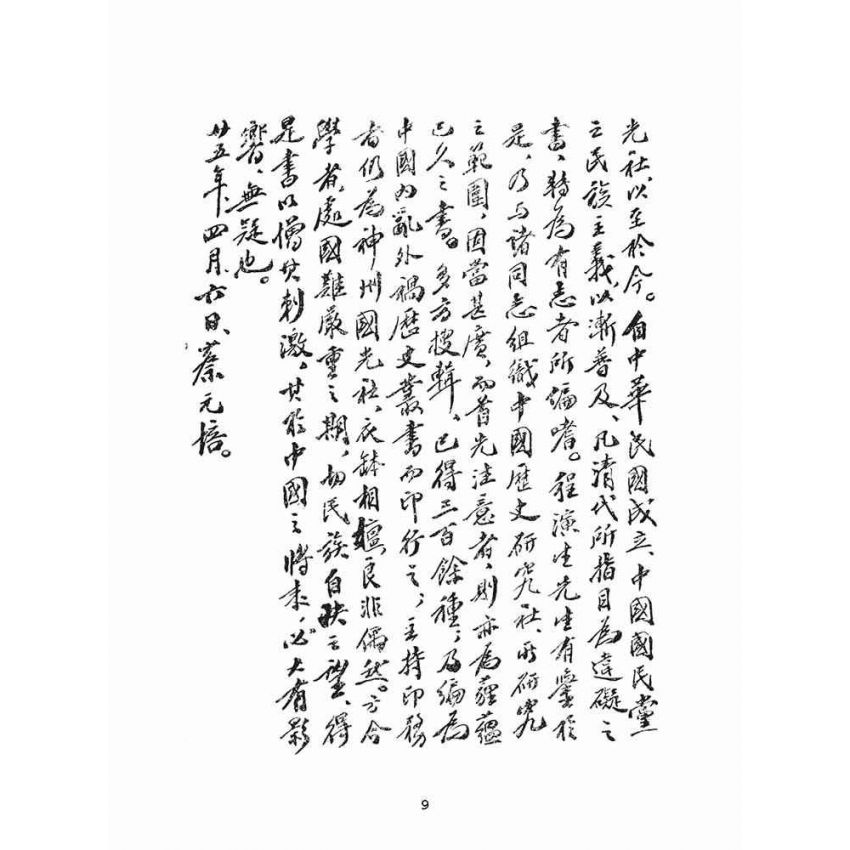 光社,以至於今。自中華民國成立、中國國民黨
之民族主義以漸普及、凡清代所指目為違礙之
書、轉為有志者所偏嗜。程演生先生有鑒於
是,乃与諸同志組織中國歷史研究社、所研究
之範圍,因當甚廣,而首先注意者,則亦為蘊蘊
已久之書。多方搜輯、已得三百餘種,乃編為
中國內亂外禍歷史叢書而印行之,主持印務
者仍為神州國光社,衣缽相嬗,良非偶然。方今
學者,處國難嚴重之期,切民族自決之望,得
是書以增其刺激,其於中國之將來,必大有影
響,無疑也。
廿五年四月六日、蔡元培。
9